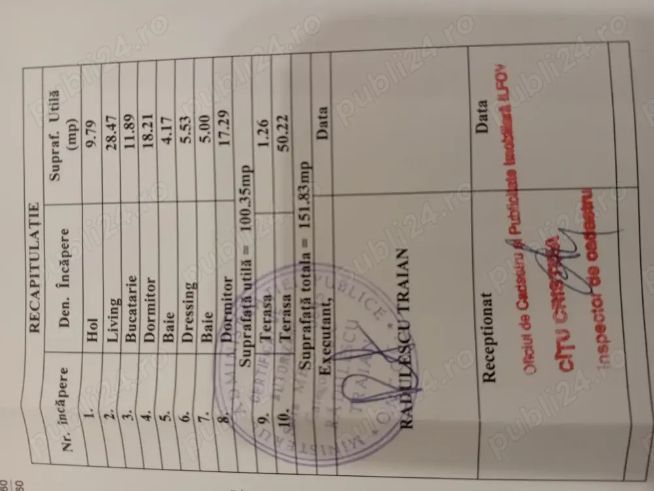 RECAPITULAȚIE
Nr. încăpere Den. Încăpere Supraf. Utilă (mp)
1. Hol 9.79
2. Living 28.47
3. Bucatarie 11.89
4. Dormitor 18.21
5. Baie 4.17
6. Dressing 5.53
7. Baie 5.00
8. Dormitor 17.29
Suprafață utilă = 100.35mp
9. Terasa 1.26
10. Terasa 50.22
Suprafață totala = 151.83mp
Executant, Data
RADULESCU TRAIAN
Receptionat Data
Oficiul de Cadastru și Publicitate Imobiliară ILFOV
CÎTU CRISTINA
Inspector de cadastru
publi24.ro